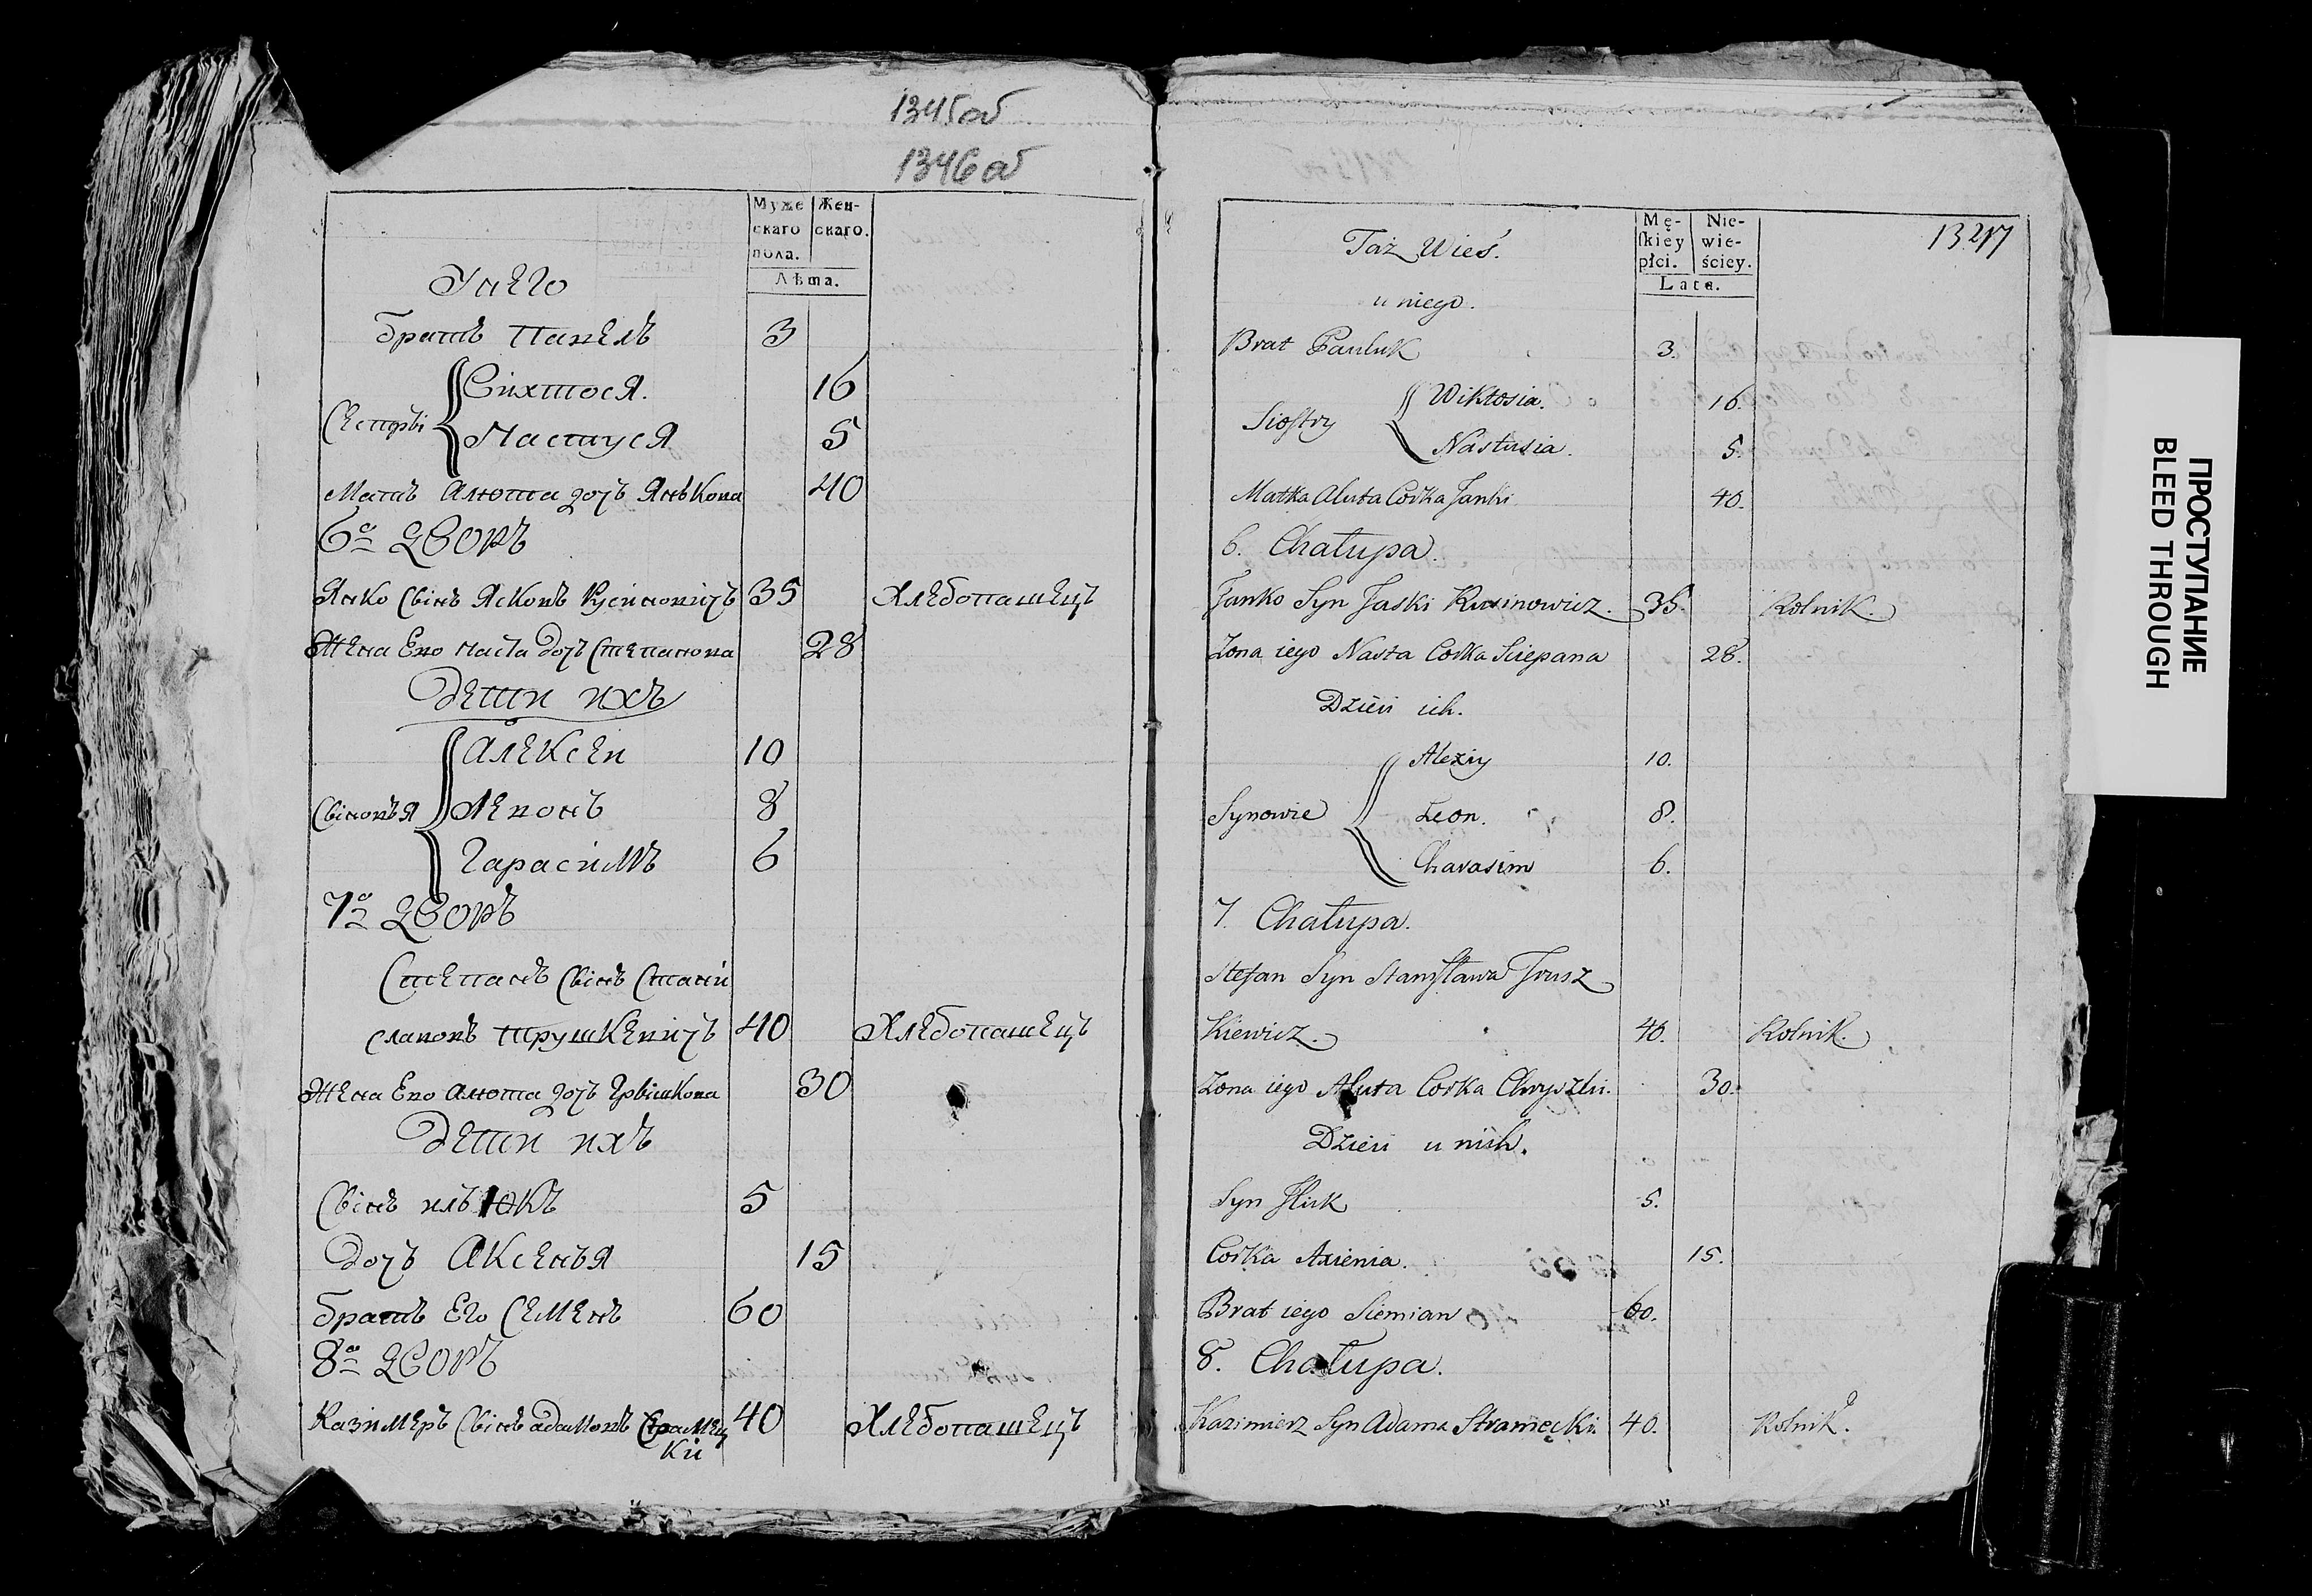 1345об
1346об
Муже
скаго
пола.
Жен-
скаго.
Лѣта.
У него
братъ Павелъ 3
Сестры
Вихтося. 16
Настуся 5
Мать Алюта дочь Янькова 40
6й Дворъ
Янко Сынъ Ясковъ Русиновичъ 35 Хлебопашецъ
Жена Ево Наста дочь Степанова 28
Дети ихъ
Сыновья
Алексей 10
Левонъ 8
Гарасимъ 6
7й Дворъ
Степанъ Сынъ Стани
славовъ Трушкевичъ 40 Хлебопашецъ
Жена Ево Алюта дочь Грышкова 30
Дети ихъ
Сынъ ильюкъ 5
Дочь Аксенья 15
братъ Его Семенъ 60
8й Дворъ
Казимеръ Сынъ адамовъ Страмец 40 Хлебопашецъ
кй
1347
Taż Wieś.
Mę-
ſkiey
płci.
Nie-
wie-
ściey.
Lata.
u niego.
Brat Pauluk 3.
Sioſtry
Wiktosia. 16.
Nastusia. 5.
Matka Aluta Corka Janki 40.
6. Chałupa.
Janko Syn Jaski Rusinowicz. 35. Rolnik.
Zona iego Nasta Corka Sciepana 28.
Dzieci ich.
Synowie
Alexiy 10.
Leon. 8.
Charasim 6.
7. Chałupa.
Stefan Syn Stanyſława Trusz
Kiewicz. 40. Rolnik.
Zona iego Aluta Corka Chryszki. 30.
Dzieci u nich.
Syn Jliuk 5.
Corka Axienia. 15.
Brat iego Siemian 60.
8. Chałupa.
Kazimierz Syn Adama Stramęcki 40. Rolnik.
ПРОСТУПАНИЕ
BLEED THROUGH